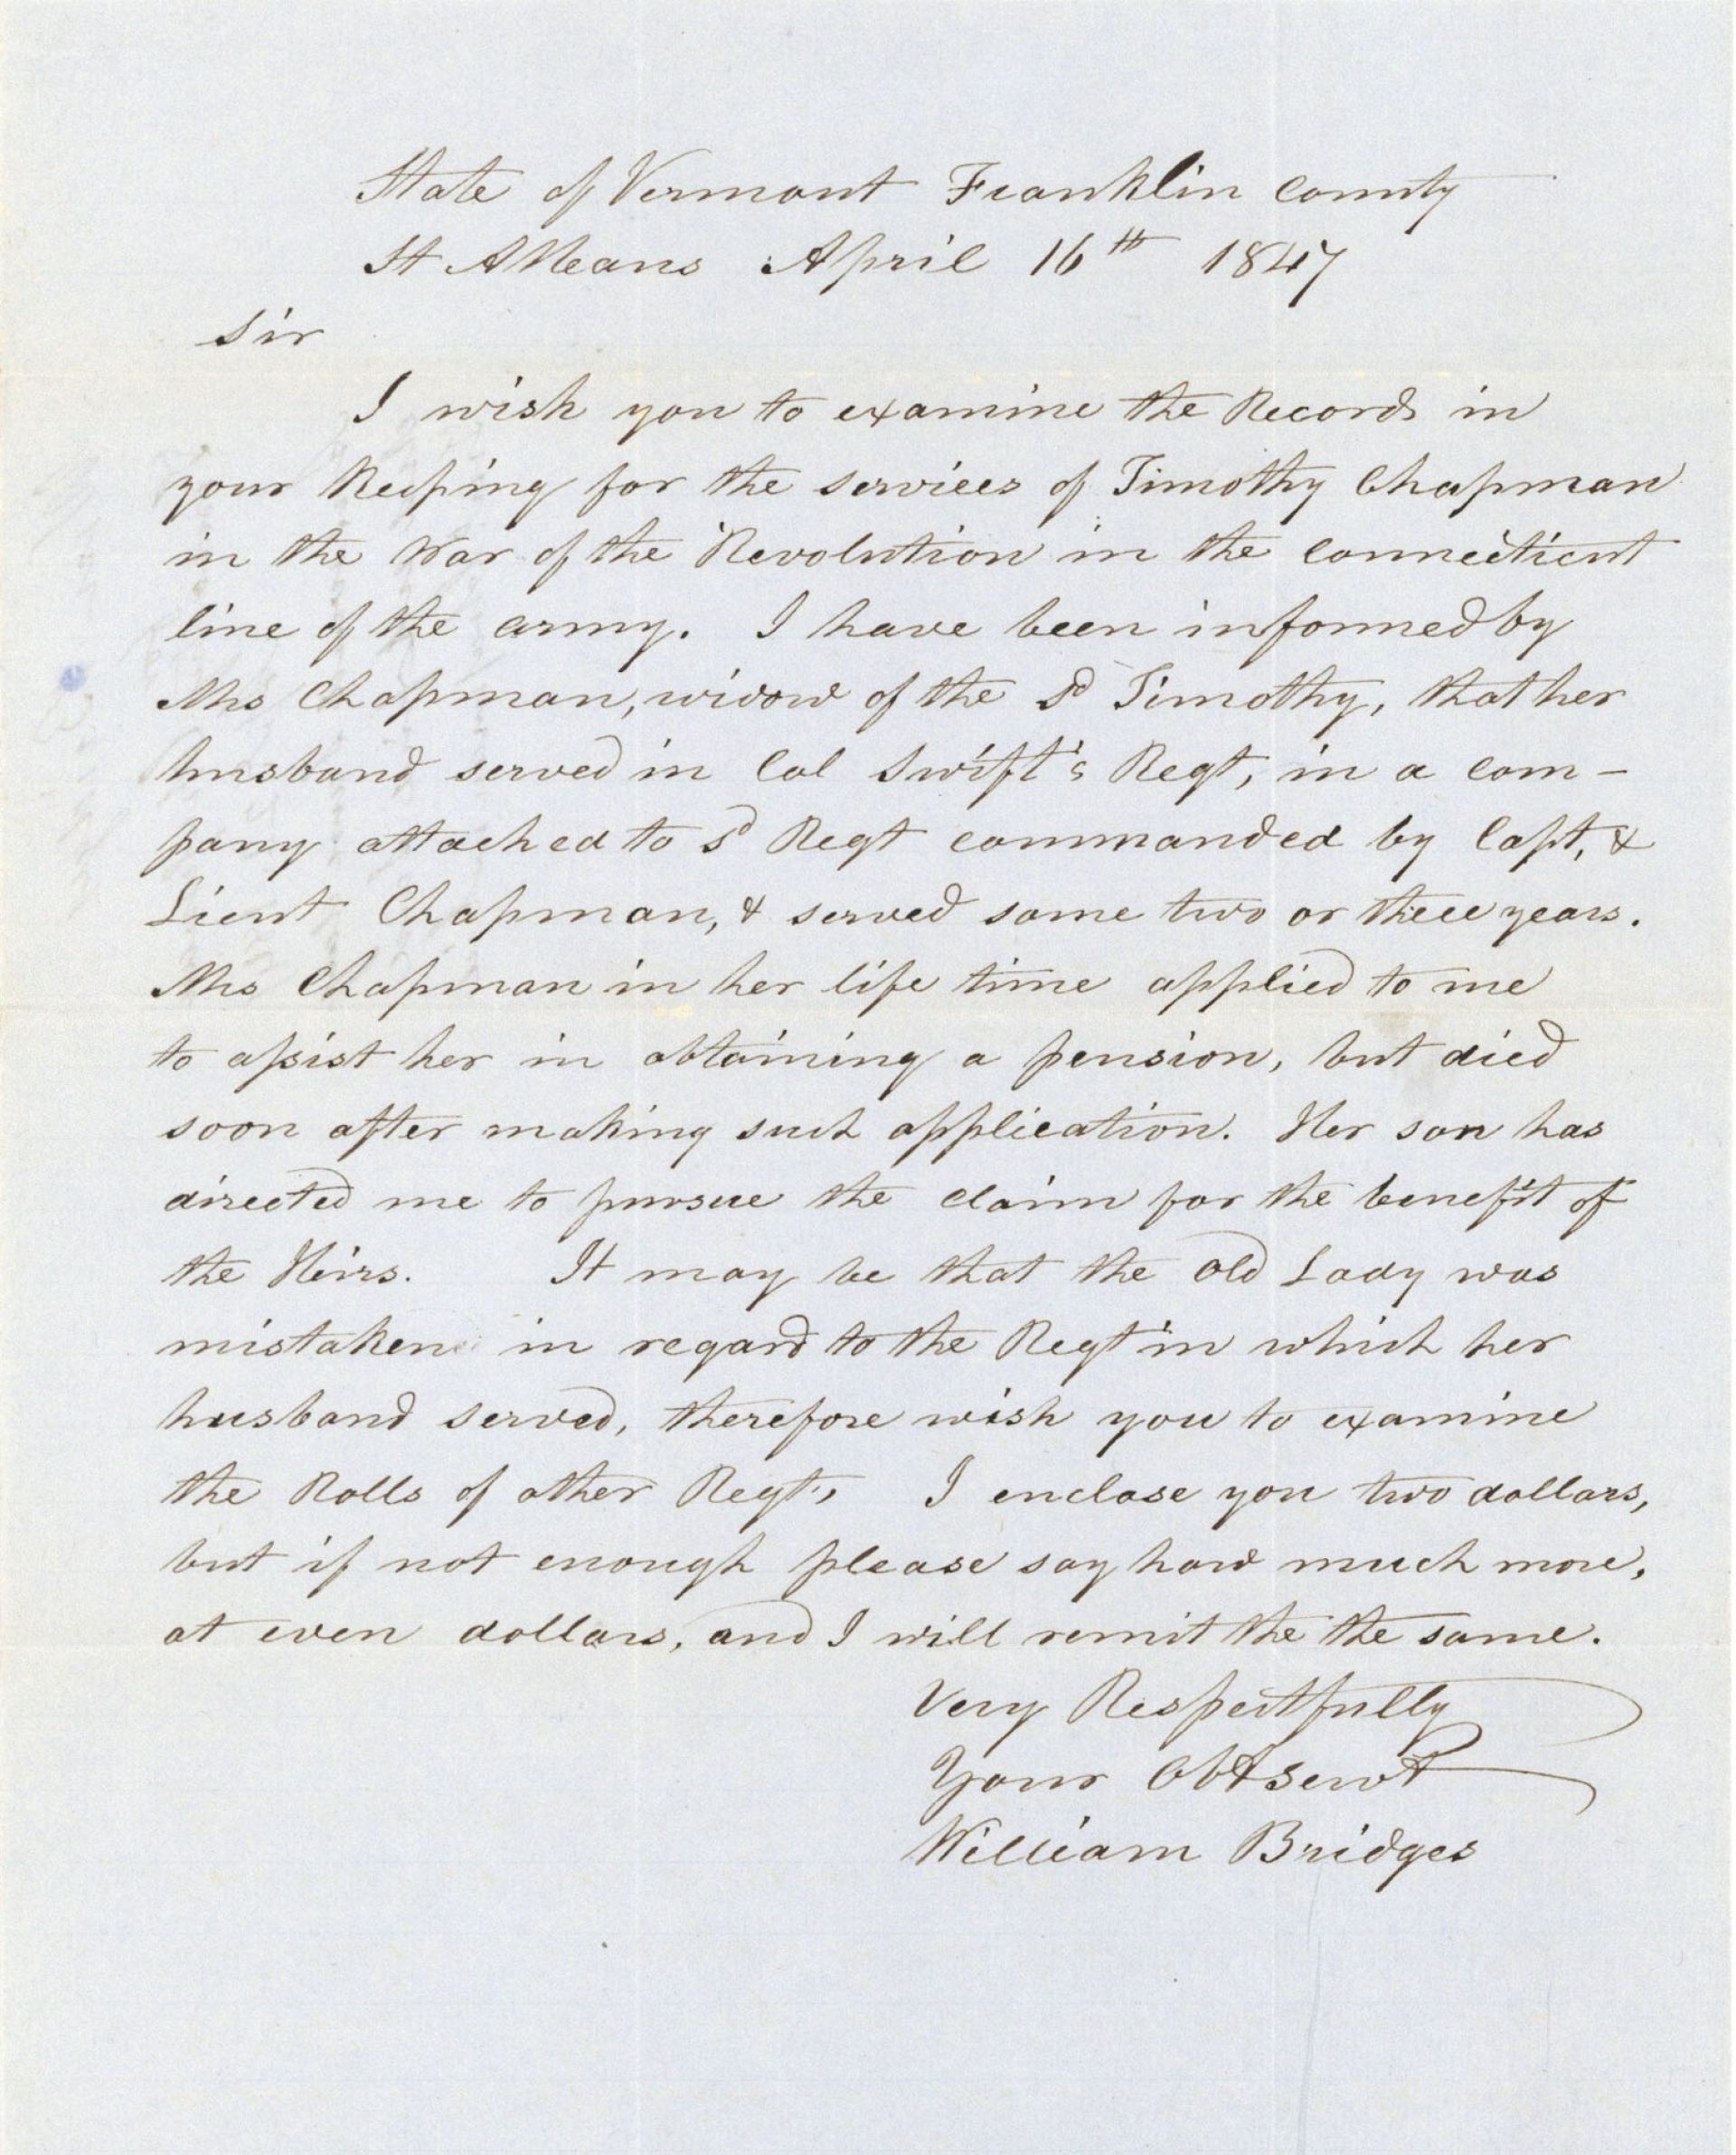 State of Vermont Franklin County
St Albans April 16th 1847
Sir
I wish you to examine the Records in
your Keeping for the services of Timothy Chapman
in the War of the Revolution in the Connecticut
line of the army. I have been informed by
Mrs Chapman, widow of the sd Timothy, that her
husband served in Col Swift's Regt, in a com-
pany attached to sd Regt commanded by Capt, &
Lieut Chapman, & served some two or three years.
Mrs Chapman in her life time applied to me
to assist her in obtaining a pension, but died
soon after making such application. Her son has
directed me to pursue the claim for the benefit of
the Heirs. It may be that the old Lady was
mistaken in regard to the Regt in which her
husband served, therefore wish you to examine
the Rolls of other Regts, I enclose you two dollars,
but if not enough please say how much more,
at even dollars, and I will remit the the same.
Very Respectfully
Your Obt Servt
William Bridges